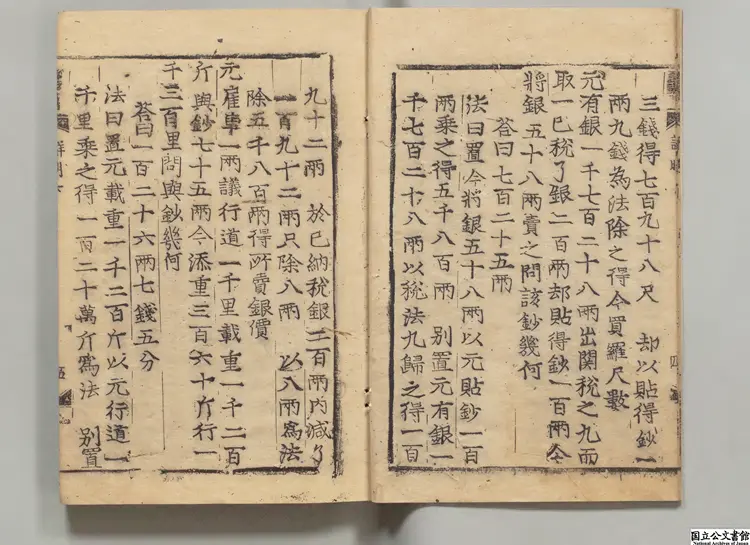 三錢得七百九十八尺　却以貼得鈔一
兩九錢為法除之得今買羅尺數
元有銀一千七百二十八兩出関稅之九而
取一已稅了銀二百兩却貼得鈔一百兩今
將銀五十八兩賣之問該鈔幾何
荅曰七百二十五兩
法曰置今將銀五十八兩以元貼鈔一百
兩乘之得五千八百兩　別置元有銀一
千七百二十八兩以稅法九歸之得一百
九十二兩　於已納稅銀二百兩內減了
一百九十二兩只除八兩　以八兩爲法
除五千八百兩得所賣銀價
元雇車一兩議行道一千里載重一千二百
斤與鈔七十五兩今添重三百六十斤行一
千三百里問與鈔幾何
荅曰一百二十六兩七錢五分
法曰置元載重一千二百斤以元行道一
千里乘之得一百二十萬斤爲法　別置
国立公文書館
National Archives of Japan